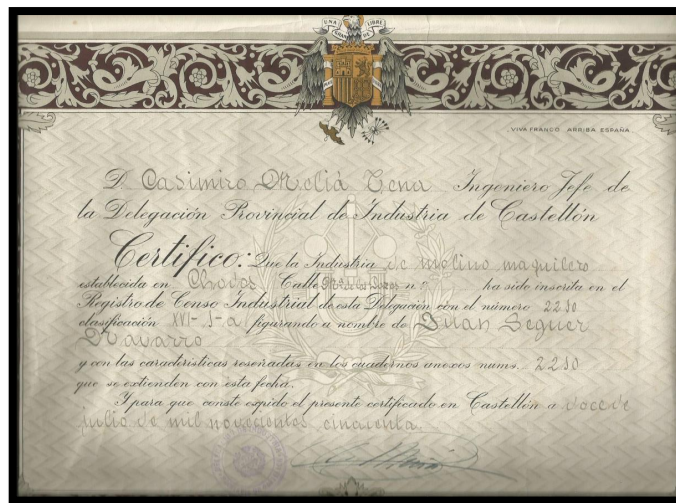 UNA GRANDE LIBRE
VIVA FRANCO ARRIBA ESPAÑA
D. Casimiro Meliá Tena Ingeniero Jefe de
la Delegación Provincial de Industria de Castellón
Certifico: Que la Industria de molino maquilero
establecida en Chodos Calle n.º ha sido inscrita en el
Registro de Censo Industrial de esta Delegación con el número 2210
clasificación XVI-1-a figurando a nombre de Juan Seguer
Navarro
y con las características reseñadas en los cuadernos anexos nums. 2210
que se extienden con esta fecha.
Y para que conste expido el presente certificado en Castellón a doce de
julio de mil novecientos cincuenta